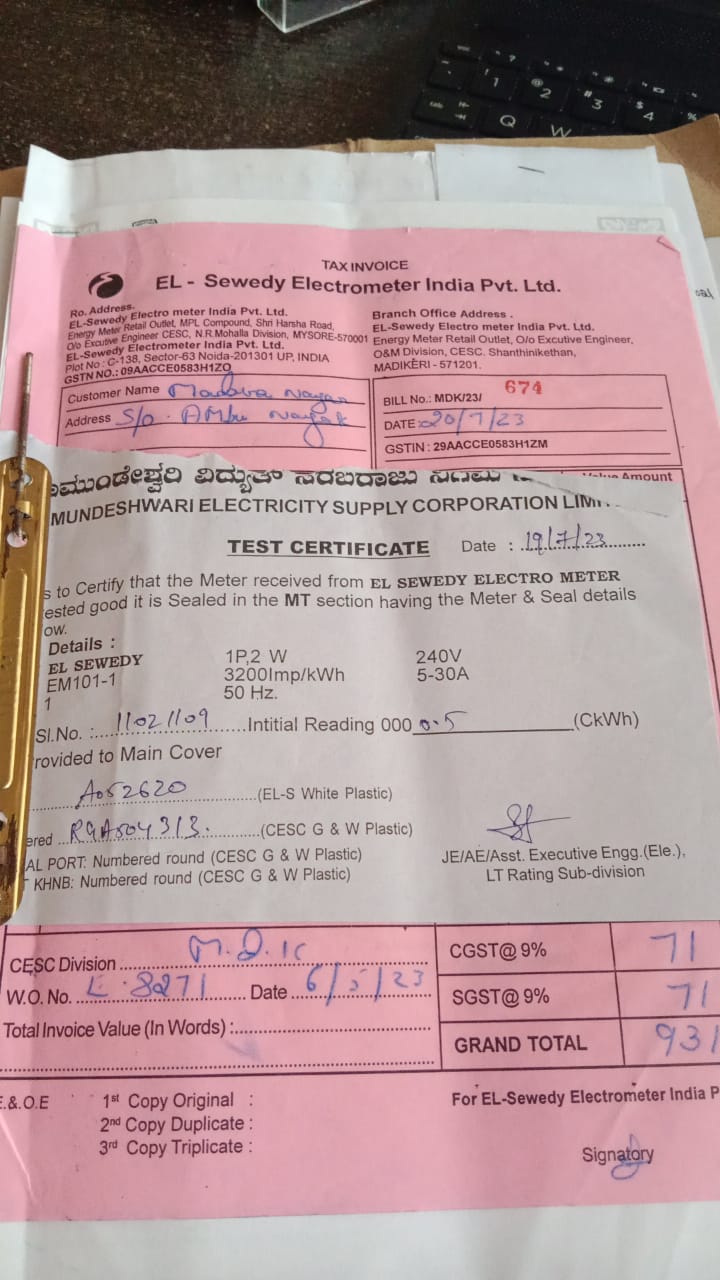 TAX INVOICE
EL - Sewedy Electrometer India Pvt. Ltd.
Ro. Address.
EL-Sewedy Electro meter India Pvt. Ltd.
Energy Meter Retail Outlet, MPL Compound, Shri Harsha Road,
O/o Excutive Engineer CESC, N.R.Mohalla Division, MYSORE-570001
EL-Sewedy Electrometer India Pvt. Ltd.
Plot No : C-138, Sector-63 Noida-201301 UP, INDIA
GSTN NO.: 09AACCE0583H1ZO
Branch Office Address .
EL-Sewedy Electro meter India Pvt. Ltd.
Energy Meter Retail Outlet, O/o Excutive Engineer,
O&M Division, CESC. Shanthinikethan,
MADIKERI - 571201.
Customer Name
Address S/o.
BILL No.: MDK/23/ 674
DATE : 20/7/23
GSTIN : 29AACCE0583H1ZM
Amount
ಮುಂಡೇಶ್ವರಿ ವಿದ್ಯುತ್ ಸರಬರಾಜು
MUNDESHWARI ELECTRICITY SUPPLY CORPORATION LIMI
TEST CERTIFICATE
Date : 19/7/23
s to Certify that the Meter received from EL SEWEDY ELECTRO METER
ested good it is Sealed in the MT section having the Meter & Seal details
ow.
Details :
EL SEWEDY 1P,2 W 240V
EM101-1 3200Imp/kWh 5-30A
1 50 Hz.
Sl.No. : 11021109 Intitial Reading 000 0.5 (CkWh)
rovided to Main Cover
A052620 (EL-S White Plastic)
ered (CESC G & W Plastic)
AL PORT: Numbered round (CESC G & W Plastic)
KHNB: Numbered round (CESC G & W Plastic)
JE/AE/Asst. Executive Engg.(Ele.),
LT Rating Sub-division
CESC Division
W.O. No. E.8271 Date 6/5/23
Total Invoice Value (In Words) :
CGST@ 9% 71
SGST@ 9% 71
GRAND TOTAL 931
E.&.O.E
1st Copy Original :
2nd Copy Duplicate :
3rd Copy Triplicate :
For EL-Sewedy Electrometer India P
Signatory